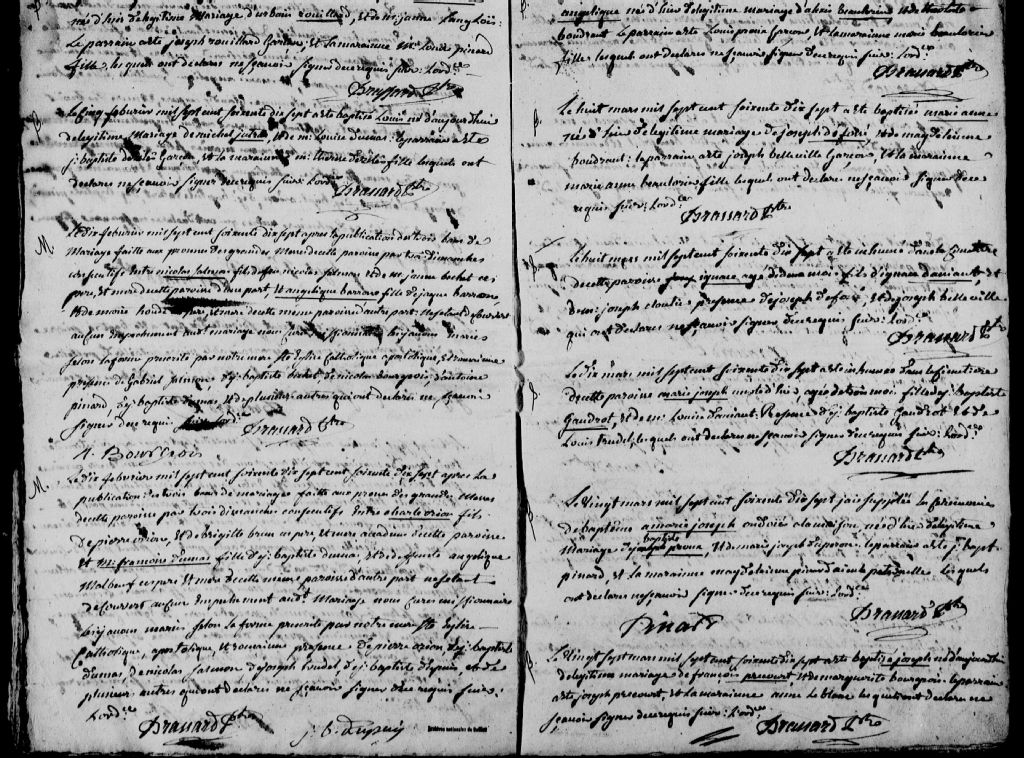 né d'hier de légitime Mariage d'urbain rouillard, et de m. jeanne Langlois:
Le parrain a été joseph rouillard Garcon, et la maraine Me Louise pinard
fille, lesquels ont declarés ne sçavoir signer de ce requis suiv: l'ordce
Brassard Ptre
Le cinq fevrier mil sept cent soixente dix sept a été baptisé Louis né d'aujourd'hui
de légitime Mariage de michel jutra et de m. Louise dumas: le parrain a été
j: baptiste Garcon, et la maraine m: therese fille lesquels ont
declarés ne sçavoir signer de ce requis suiv: l'ordce
Brassard Ptre
M. Le dix fevrier mil sept cent soixente dix sept apres la publication des trois bans de
Mariage faitte aux prones des grandes Messes de cette paroisse par trois dimanches
consecutifs entre nicolas fils de feu nicolas et de m. jeanne bechet ses
pere, et mere de cette paroisse d'une part, et angelique barrare fille de jaque barron,
et de marie houde ses pere, et mere de cette meme paroisse d'autre part. ne s'etant decouvert
aucun Empechement audt mariage nous Curé Missionnaire les ayans mariés
selon la forme prescrite par notre mere ste Eglise Catholique apostolique, et romaine
presence de Gabriel de j: baptiste de nicolas bourgeois, d'antoine
pinard, de j: baptiste dumas, et de plusieurs autres qui ont declarés ne sçavoir
signer de ce requis l'ordce
Brassard Ptre
A. Bourgeois
M. Le dix fevrier mil sept cent soixente dix sept cent soixente dix sept apres la
publication des trois bans de mariages faitte aux prones des grandes Messes
de cette paroisse par trois dimanches consecutifs Entre charle orion fils
de pierre orion, et de brigitte brun ses pere, et mere accadiens de cette paroisse
et m: francoise dumas fille de j: baptiste dumas, et de angelique
Malbeuf ses pere, et mere de cette meme paroisse d'autre part ne s'etant
decouvert aucun Empechement audt Mariage nous Curé missionnaire
les ayans mariés selon la forme prescrite par notre mere ste Eglise
Catholique, apostolique, et romaine presence de pierre orion, de j: baptiste
dumas, de nicolas de joseph de j: baptiste depuis et de
plusieurs autres qui ont declarés ne sçavoir signer de ce requis suiv:
l'ordce
Brassard Ptre
j: b. dupuy
Archives nationales du Québec
angelique né d'hier de légitime mariage d'alexis beaulorier et de
boudraut le parrain a été Louis prou Garcon, et la maraine marie beaulorier
fille, lesquels ont declarés ne sçavoir signer de ce requis suiv: l'ordce
Brassard Ptre
Le huit mars mil sept cent soixente dix sept a été baptisée marie anne
né d'hier de légitime mariage de joseph et de magdelenne
boudraut: le parrain a été joseph belleville Garcon, et la maraine
marie anne beaulorier fille lesquels ont declaré ne sçavoir signer de ce
requis suiv: l'ordce
Brassard Ptre
Le huit mars mil sept cent soixente dix sept a été inhumé dans le Cimetiere
de cette paroisse ignace agé de deux mois fils d'ignace damiant, et
de m: joseph presence de joseph et de joseph belleville
qui ont declarés ne sçavoir signer de ce requis suiv: l'ordce
Brassard Ptre
Le dix mars mil sept cent soixente dix sept a été inhumée dans le Cimetiere
de cette paroisse marie joseph agée de mois fille de j: baptiste
Gaudrot, et de m: Louise damiant, Presence de j: baptiste Gaudrot et de
Louis lesquels ont declarés ne sçavoir signer de ce requis suiv: l'ordce
Brassard Ptre
Le vingt mars mil sept cent soixente dix sept j'ai supplée les ceremonies
de baptême a marie joseph ondoiée a la maison, née d'hier de légitime
baptiste
Mariage de joseph proux, et de marie joseph le parrain a été j: bapt
pinard, et la maraine magdelaine pinard lesquels
ont declarés ne sçavoir signer de ce requis suiv: l'ordce
Brassard Ptre
Pinard
Le vingt sept mars mil sept cent, soixente dix sept a été baptisé joseph né d'aujourd'hui
de légitime mariage de francois precourt et de marguerite bourgeois le parrain
a été joseph precourt, et la maraine anne le blanc lesquels ont declaré ne
sçavoir signer de ce requis suiv: l'ordce
Brassard Ptre